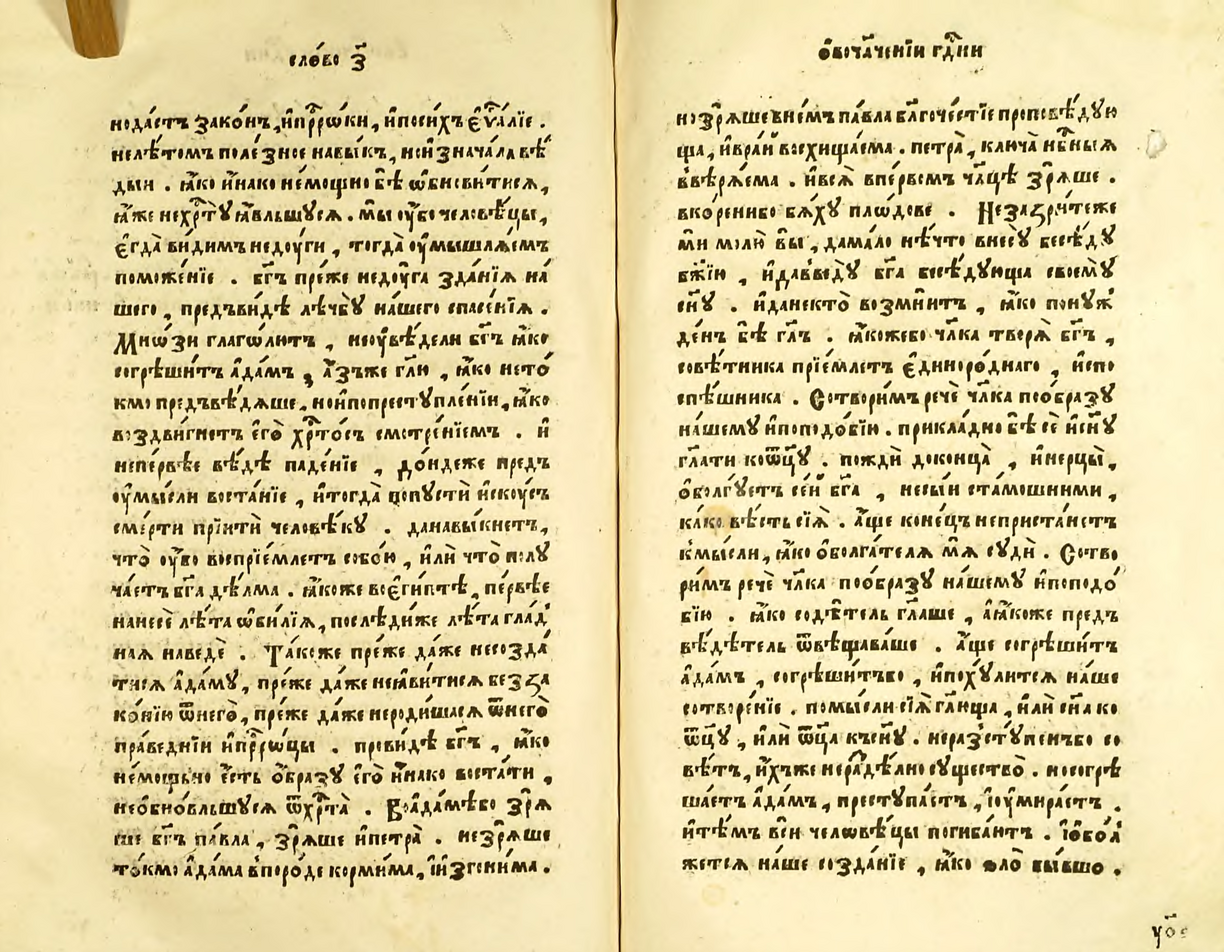 сло́во з҃
нода́стъ зако́нъ, и҆прⷪ҇рѡки, и҆посихъ є҆ѵⷢ҇а́лїе.
нелѣ́томъ поле́зное навы́къ, нои҆знача́ла вѣ́
дыи. ꙗ҆́ко и҆́нако немо́щно бѣ̀ ѡ҆бнови́тися,
ꙗ҆́же нехрⷭ҇тꙋ̀ ꙗ҆́вльшꙋся. мы̀ ᲂу҆́бо человѣ́цы,
є҆гда̀ ви́димъ недꙋ́ги, тогда̀ ᲂу҆мышлѧ́емъ
поможе́нїе. бг҃ъ пре́же недꙋ́га зда́нїѧ на́
шего, предъви́дѣ лѣчбꙋ̀ на́шего спасе́нїѧ.
Мно́зи глаго́лютъ, неᲂу҆вѣ́дели бг҃ъ ꙗ҆́ко
согрѣши́тъ а҆да́мъ, а҆́зъже гл҃ю, ꙗ҆́ко нето́
кмо предъвѣ́дѧше, нои҆попрестꙋпле́нїи, ꙗ҆́ко
воздви́гнетъ є҆го̀ хрⷭ҇то́съ смотре́нїемъ. и҆
непе́рвѣе вѣ́дѣ паде́нїе, до́ндеже предъ
ᲂу҆мы́сли воста́нїе, и҆тогда̀ попꙋстѝ и҆скꙋ́съ
сме́рти прїитѝ человѣ́кꙋ. данавы́кнетъ,
что̀ ᲂу҆́бо воспрїе́млетъ собо́ю, и҆лѝ что̀ полꙋ
ча́етъ бг҃а дѣ́лма. ꙗ҆́коже воє҆ги́птѣ, пе́рвѣе
нанесѐ лѣ́та ѡ҆би́лїѧ, послѣ́диже лѣ́та гла́д
наѧ наведѐ. Та́коже пре́же да́же несозда́
тисѧ а҆да́мꙋ, пре́же да́же неꙗ҆ви́тисѧ безза
ко́нїю ѿнего̀, пре́же да́же неродишасѧ ѿнего̀
пра́веднїи и҆прⷪ҇ро́цы. прови́дѣ бг҃ъ, ꙗ҆́ко
немо́щьно є҆́сть о҆́бразꙋ є҆го̀ и҆́нако воста́ти,
неѻ҆бно́вльшꙋсѧ ѿхрⷭ҇та̀. Воа҆да́мѣбо зрѧ́
ше бг҃ъ па́вла, зрѧ́ше и҆петра̀. незрѧ́ше
то́кмо а҆да́ма в̾поро́де корми́ма, и҆и҆згони́ма.
ѻ҆вочл҃че́нїи гдⷭ҇ни
нозрѧ́ше в̾не́мъ па́вла бл҃гоче́стїе проповѣ́дꙋю
ща, и҆вра́й восхища́ема. петра̀, клю́ча нбⷭ҇ныѧ
в̾вѣрѧ́ема. и҆всѧ̀ впе́рвомъ чл҃цѣ зрѧ́ше.
вко́ренибо бѧ́хꙋ плодо́ве. Незазри́теже
мѝ молю̀ вы̀, дама́ло нѣ́что внесꙋ̀ бесѣ́дꙋ
бж҃їю, и҆даввeдꙋ̀ бг҃а бесѣ́дꙋюща своемꙋ̀
сн҃ꙋ. и҆данекто̀ возмни́тъ, ꙗ҆́ко понꙋж
де́нъ бѣ̀ гл҃ъ. ꙗ҆́кожебо чл҃ка творѧ̀ бг҃ъ,
совѣ́тника прїе́млетъ є҆диноро́днаго, и҆спо
спѣ́шника. Сотвори́мъ речѐ чл҃ка поѻ҆́бразꙋ
на́шемꙋ и҆поподо́бїю. прикла́дно бѣ̀ сѐ и҆сн҃ꙋ
гл҃ати коѿцꙋ̀. пождѝ доконца̀, и҆нерцы̀,
ѻ҆болгꙋ́етъ се́й бг҃а, несы́и стамошними,
ка́ко вѣ́сть сїѧ̀. а҆́ще коне́цъ непристане́тъ
кмы́сли, ꙗ҆́ко ѻ҆болга́телѧ мѧ̀ сꙋдѝ. Сотво
ри́мъ речѐ чл҃ка поѻ҆́бразꙋ на́шемꙋ и҆поподо́
бїю. ꙗ҆́ко содѣ́тель гл҃аше, а҆ꙗ҆́коже предъ
вѣ́дѣтель ѿвѣщава́ше. а҆́ще согрѣши́тъ
а҆да́мъ, согрѣши́тъбо, и҆похꙋ́литсѧ на́ше
сотворе́нїе. помы́сли сїѧ̀ гл҃юща, и҆лѝ сн҃а ко
ѿцꙋ̀, и҆лѝ ѿца̀ късн҃ꙋ. неразстꙋ́пенъбо со
вѣ́тъ, и҆́хъже неразⷣѣ́лно сꙋщество̀. носогрѣ
ша́етъ а҆да́мъ, престꙋпа́етъ, и҆ᲂу҆мира́етъ.
и҆тѣ́мъ всѝ человѣ́цы погиба́ютъ. и҆ѻ҆бол
же́тсѧ на́ше созда́нїе, ꙗ҆́ко ѕло̀ бы́вшо.